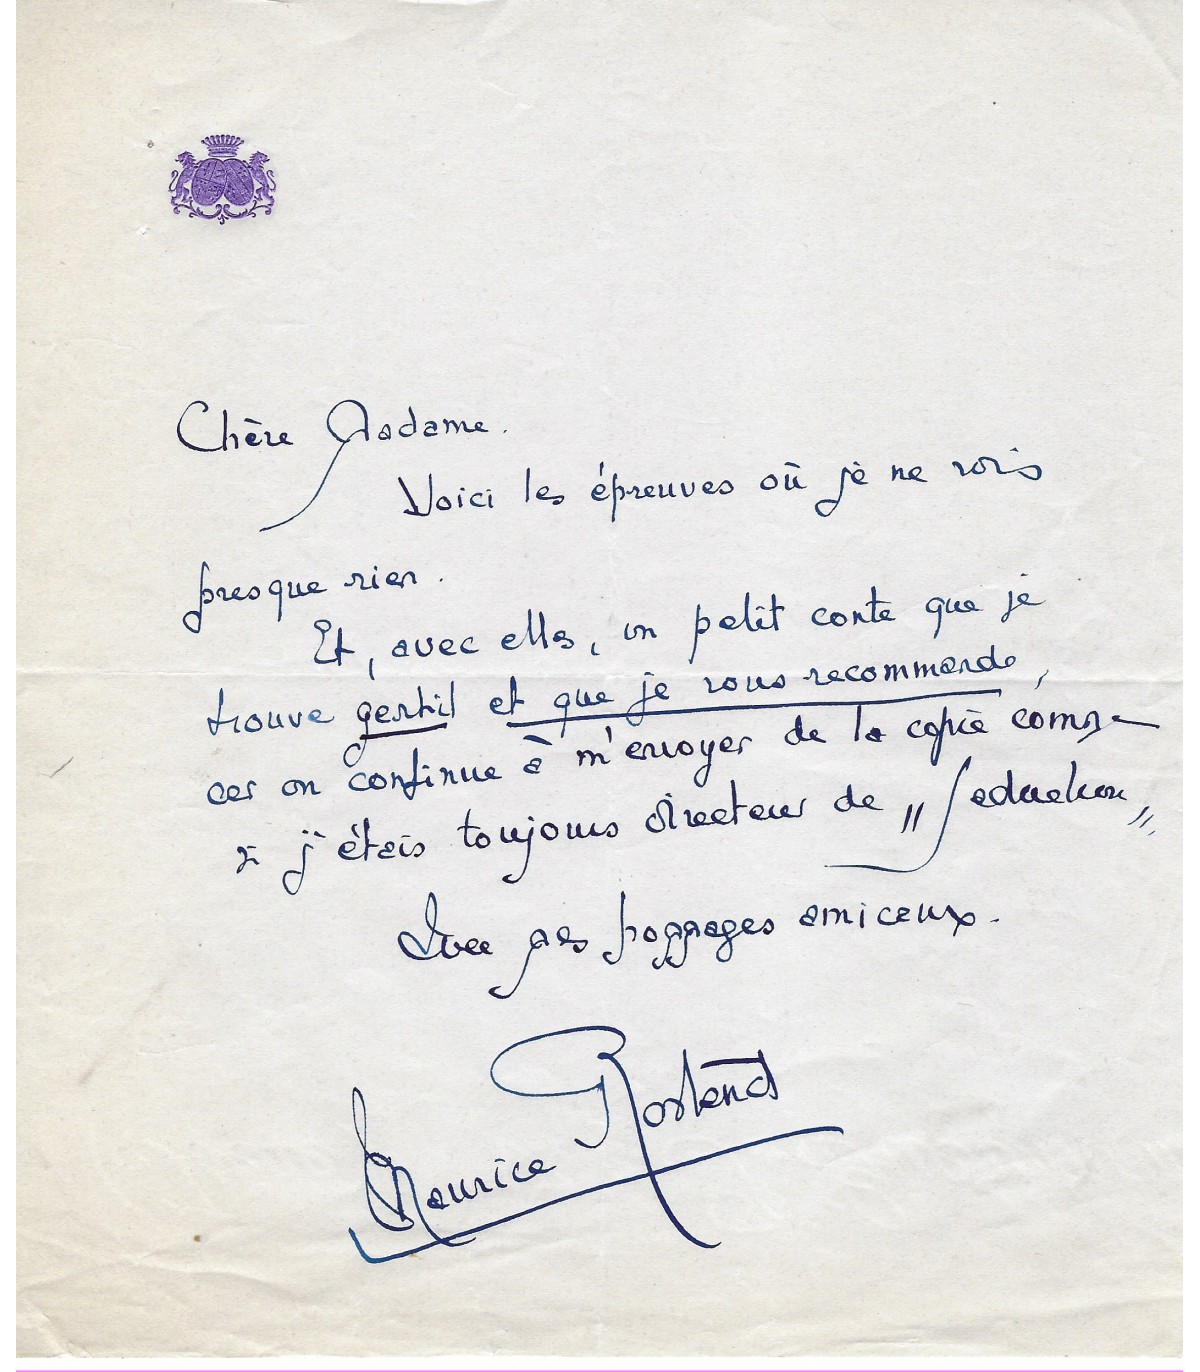 Chère Madame.
Voici les épreuves où je ne vois
presque rien.
Et, avec elles, un petit conte que je
trouve gentil et que je vous recommande,
car on continue à m'envoyer de la copie comme
si j'étais toujours directeur de "Séduction"
Avec mes hommages amicaux.
Maurice Rostand